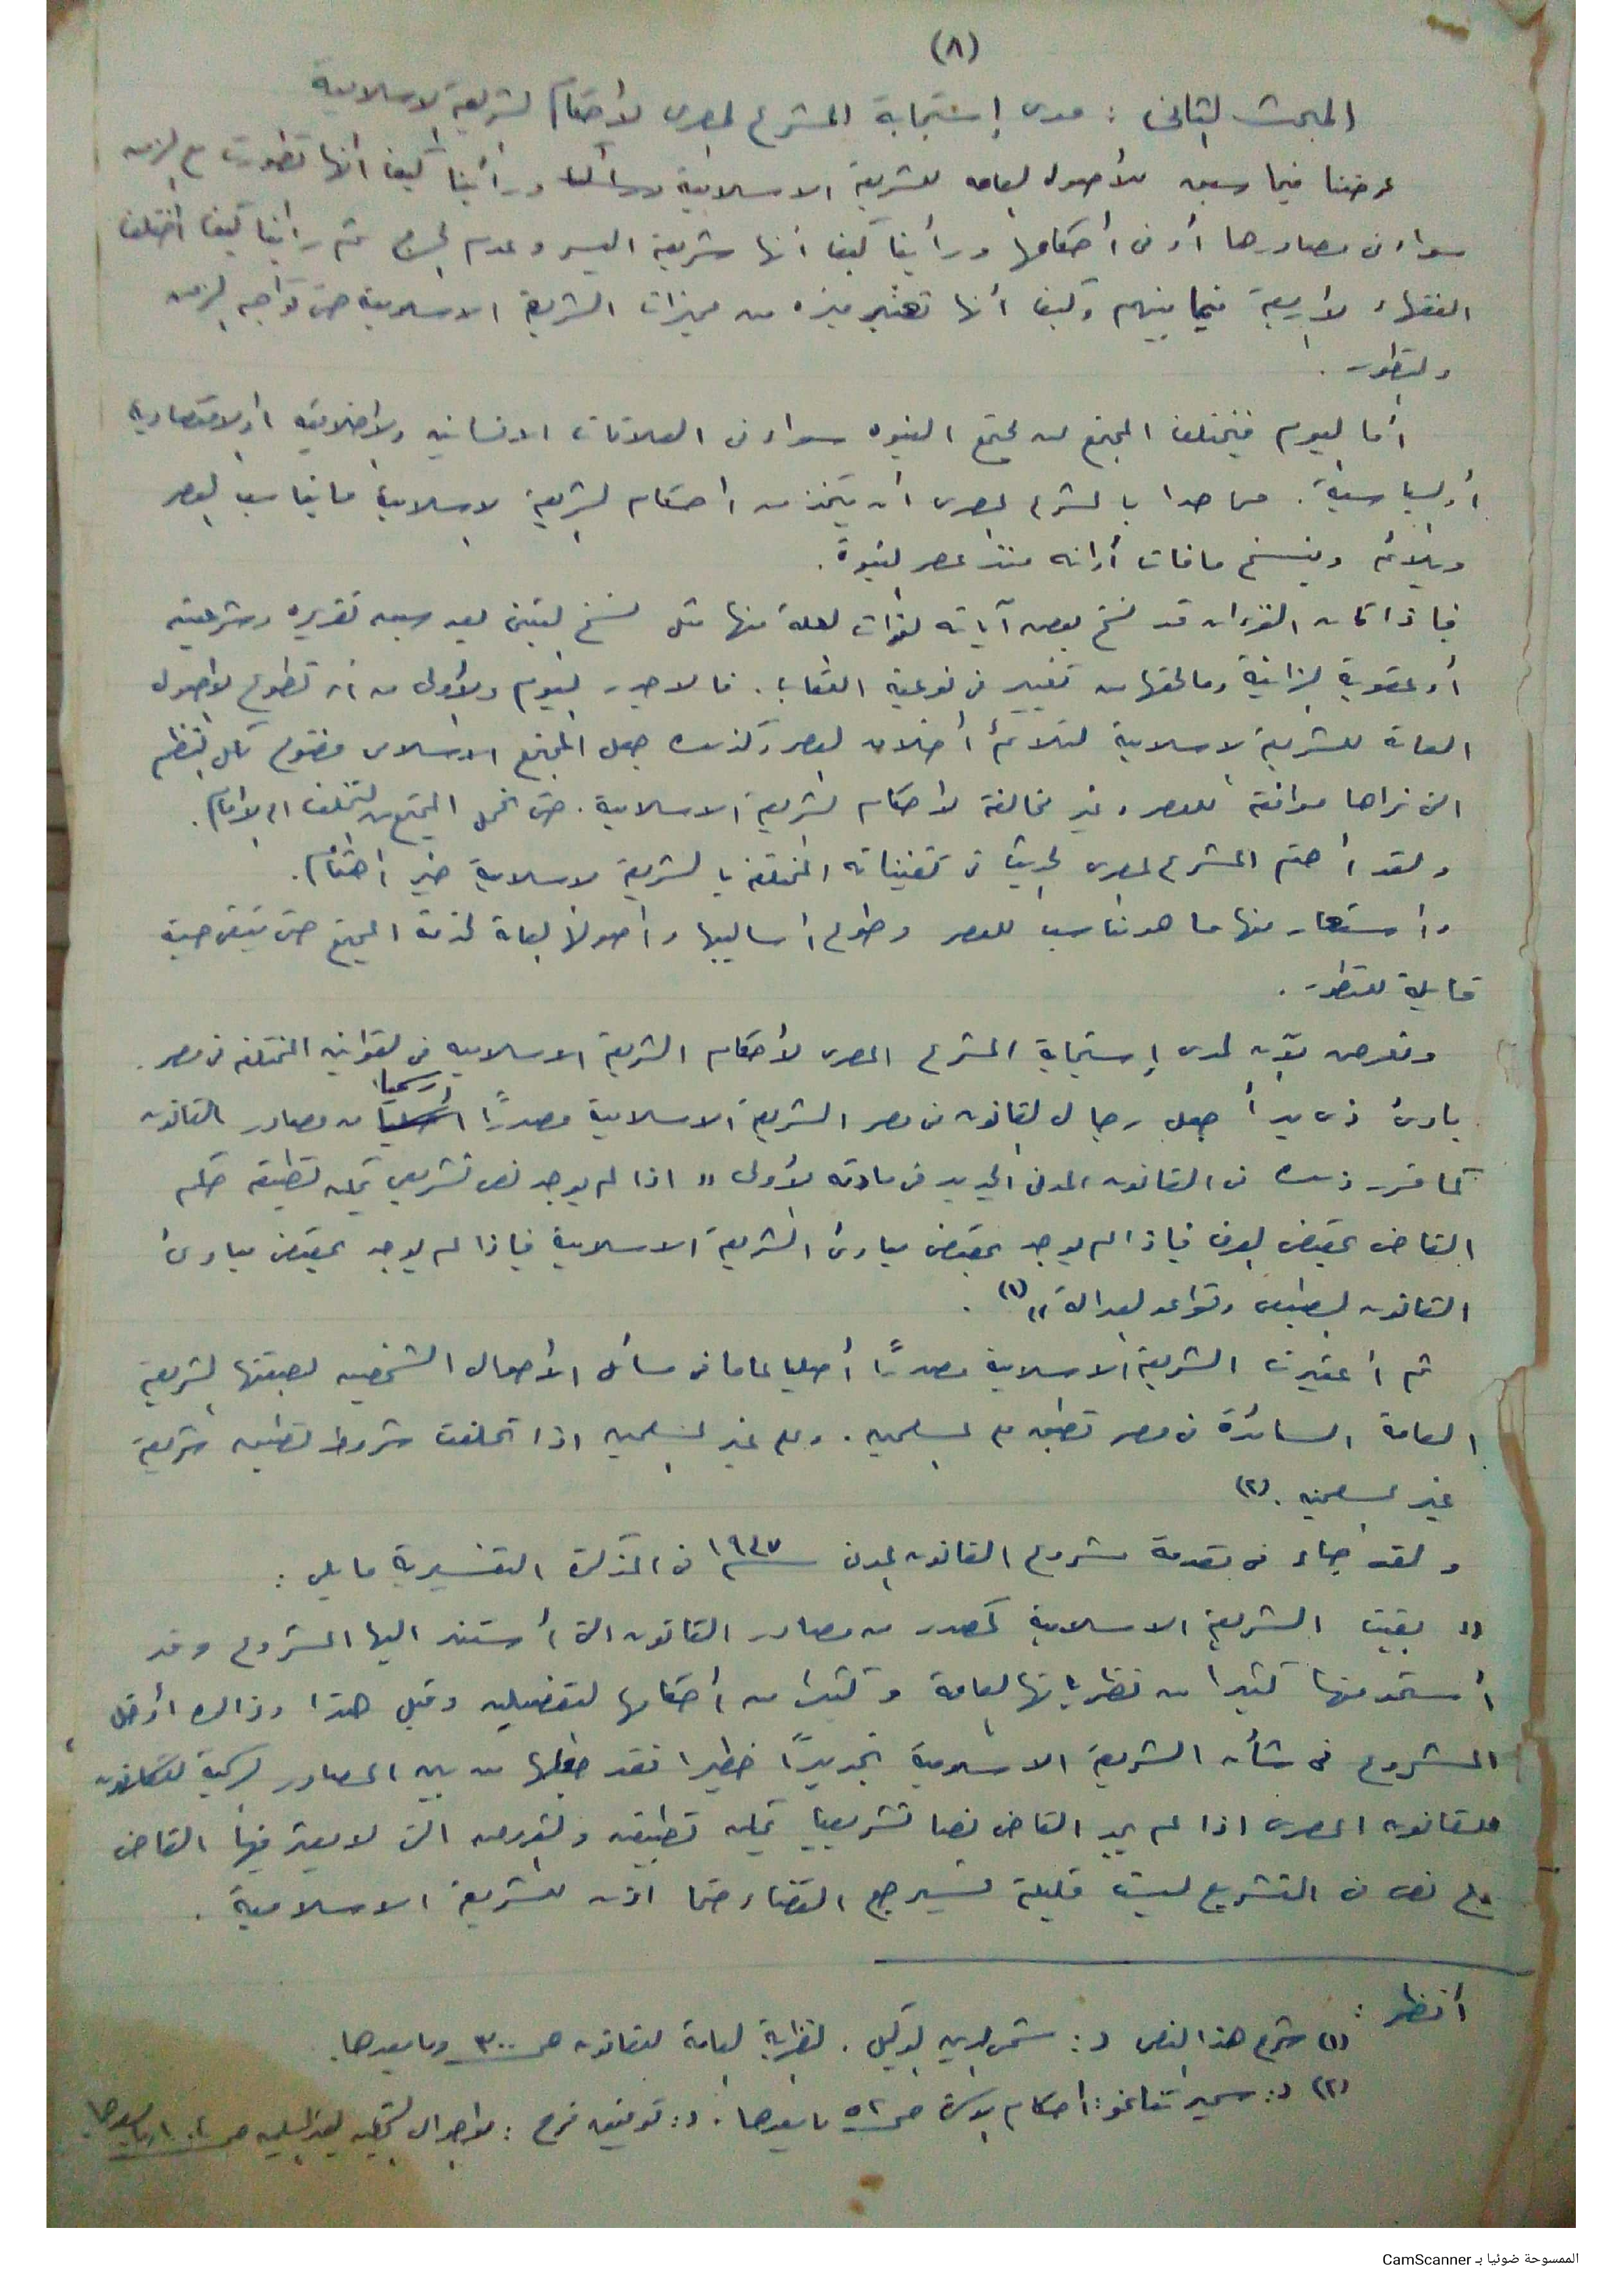 (٨)
المبحث الثانى : مدى إستجابة المشرع المصرى لأحكام الشريعة الاسلامية
عرضنا فيما سبق للأصول العامه للشريعة الاسلامية ورأينا كيف أنها تطورت مع الزمن
سواء فى مصادرها أو فى أحكامها ورأينا كيف أنها شريعة اليسر وعدم الحرج ثم رأينا كيف أختلف
الفقهاء الأربعة فيما بينهم وكيف أنها تعتبر ميزه من مميزات الشريعة الاسلامية حتى تواجه الزمن
والتطور .
أما اليوم فيختلف المجتمع عن مجتمع النبوه سواء فى العلاقات الانسانيه والأخلاقيه أو الاقتصادية
أو السياسية . مما حدا بالمشرع المصرى أن يتخذ من احكام الشريعة الاسلامية ما يناسب العصر
ويلائم وينسخ ما فات أوانه منذ عصر النبوة .
فإذا كان القرءان قد نسخ بعض آياته لفوات العلة منها مثل نسخ التبنى بعد سبق تقريره وشرعيته
أو عقوبة الزانية وما لحقها من تغيير فى نوعية العقاب . فالاجدر اليوم والأولى من أن تطوع الأصول
العامة للشريعة الاسلامية لتلائم أخلاق العصر وكذلك جعل المجتمع الاسلامى مفتوح لكل النظم
التى نراها موافقة للعصر وغير مخالفة لأحكام الشريعة الاسلامية . حتى المجتمع من التخلف الى الأمام .
ولقد أهتم المشرع المصرى الحديث فى تقنيناته المختلفة بالشريعة الاسلامية خير اهتمام .
واستعار منها ما هو مناسب للعصر وطوع أساليبها وأصولها العامة لخدمة المجتمع حتى تبقى حية
قابلة للتطور .
ونعرض الآن لمدى إستجابة المشرع المصرى لأحكام الشريعة الاسلاميه فى القوانين المختلفة فى مصر .
رسميا
بادئ ذى بدأ جعل رجال القانون فى مصر الشريعة الاسلامية مصدرًا من مصادر القانون
كما قرر ذلك فى القانون المدنى الجديد فى مادته الأولى " اذا لم يوجد نص تشريعي يمكن تطبيقه حكم
القاضى بمقتضى العرف فإذا لم يوجد بمقتضى مبادئ الشريعة الاسلامية فإذا لم يوجد بمقتضى مبادئ
القانون الطبيعى وقواعد العدالة " (١) .
ثم أعتبرت الشريعة الاسلامية مصدرًا أصليا عاما فى مسائل الأحوال الشخصيه بصفتها الشريعة
العامة السائدة فى مصر تطبق على المسلمين . وعلى غير المسلمين اذا تخلفت شروط تطبيق شريعة
غير المسلمين . (٢)
ولقد جاء فى مقدمة مشروع القانون المدنى سنة ١٩٤٧ فى المذكرة التفسيرية ما يلى :
" بقيت الشريعة الاسلامية كمصدر من مصادر القانون التى أستند اليها المشروع وقد
أستمد منها كثيرا من نظرياتها العامة وكثيرا من أحكامها التفصيليه وقبل هذا وذاك أدخل
المشروع فى شأن الشريعة الاسلامية تجديدًا خطيرا فقد جعلها من بين المصادر الرسمية للقانون
للقانون المصرى اذا لم يجد القاضى نصا تشريعيا يمكن تطبيقه والفروض التى لا يعثر فيها القاضى
على نص فى التشريع ليست قليلة فسيرجع القضاء حتما اذن للشريعة الاسلامية .
أنظر :
(١) شرح هذا النص د : شمس الدين الوكيل . النظرية العامة للقانون صـ ٣٠٠ وما بعدها .
(٢) د : سمير تناغو : أحكام الأسرة صـ ٥٢ ما بعدها . د : توفيق فرج : لغير المسلمين صـ وما بعدها
الممسوحة ضوئيا بـ CamScanner